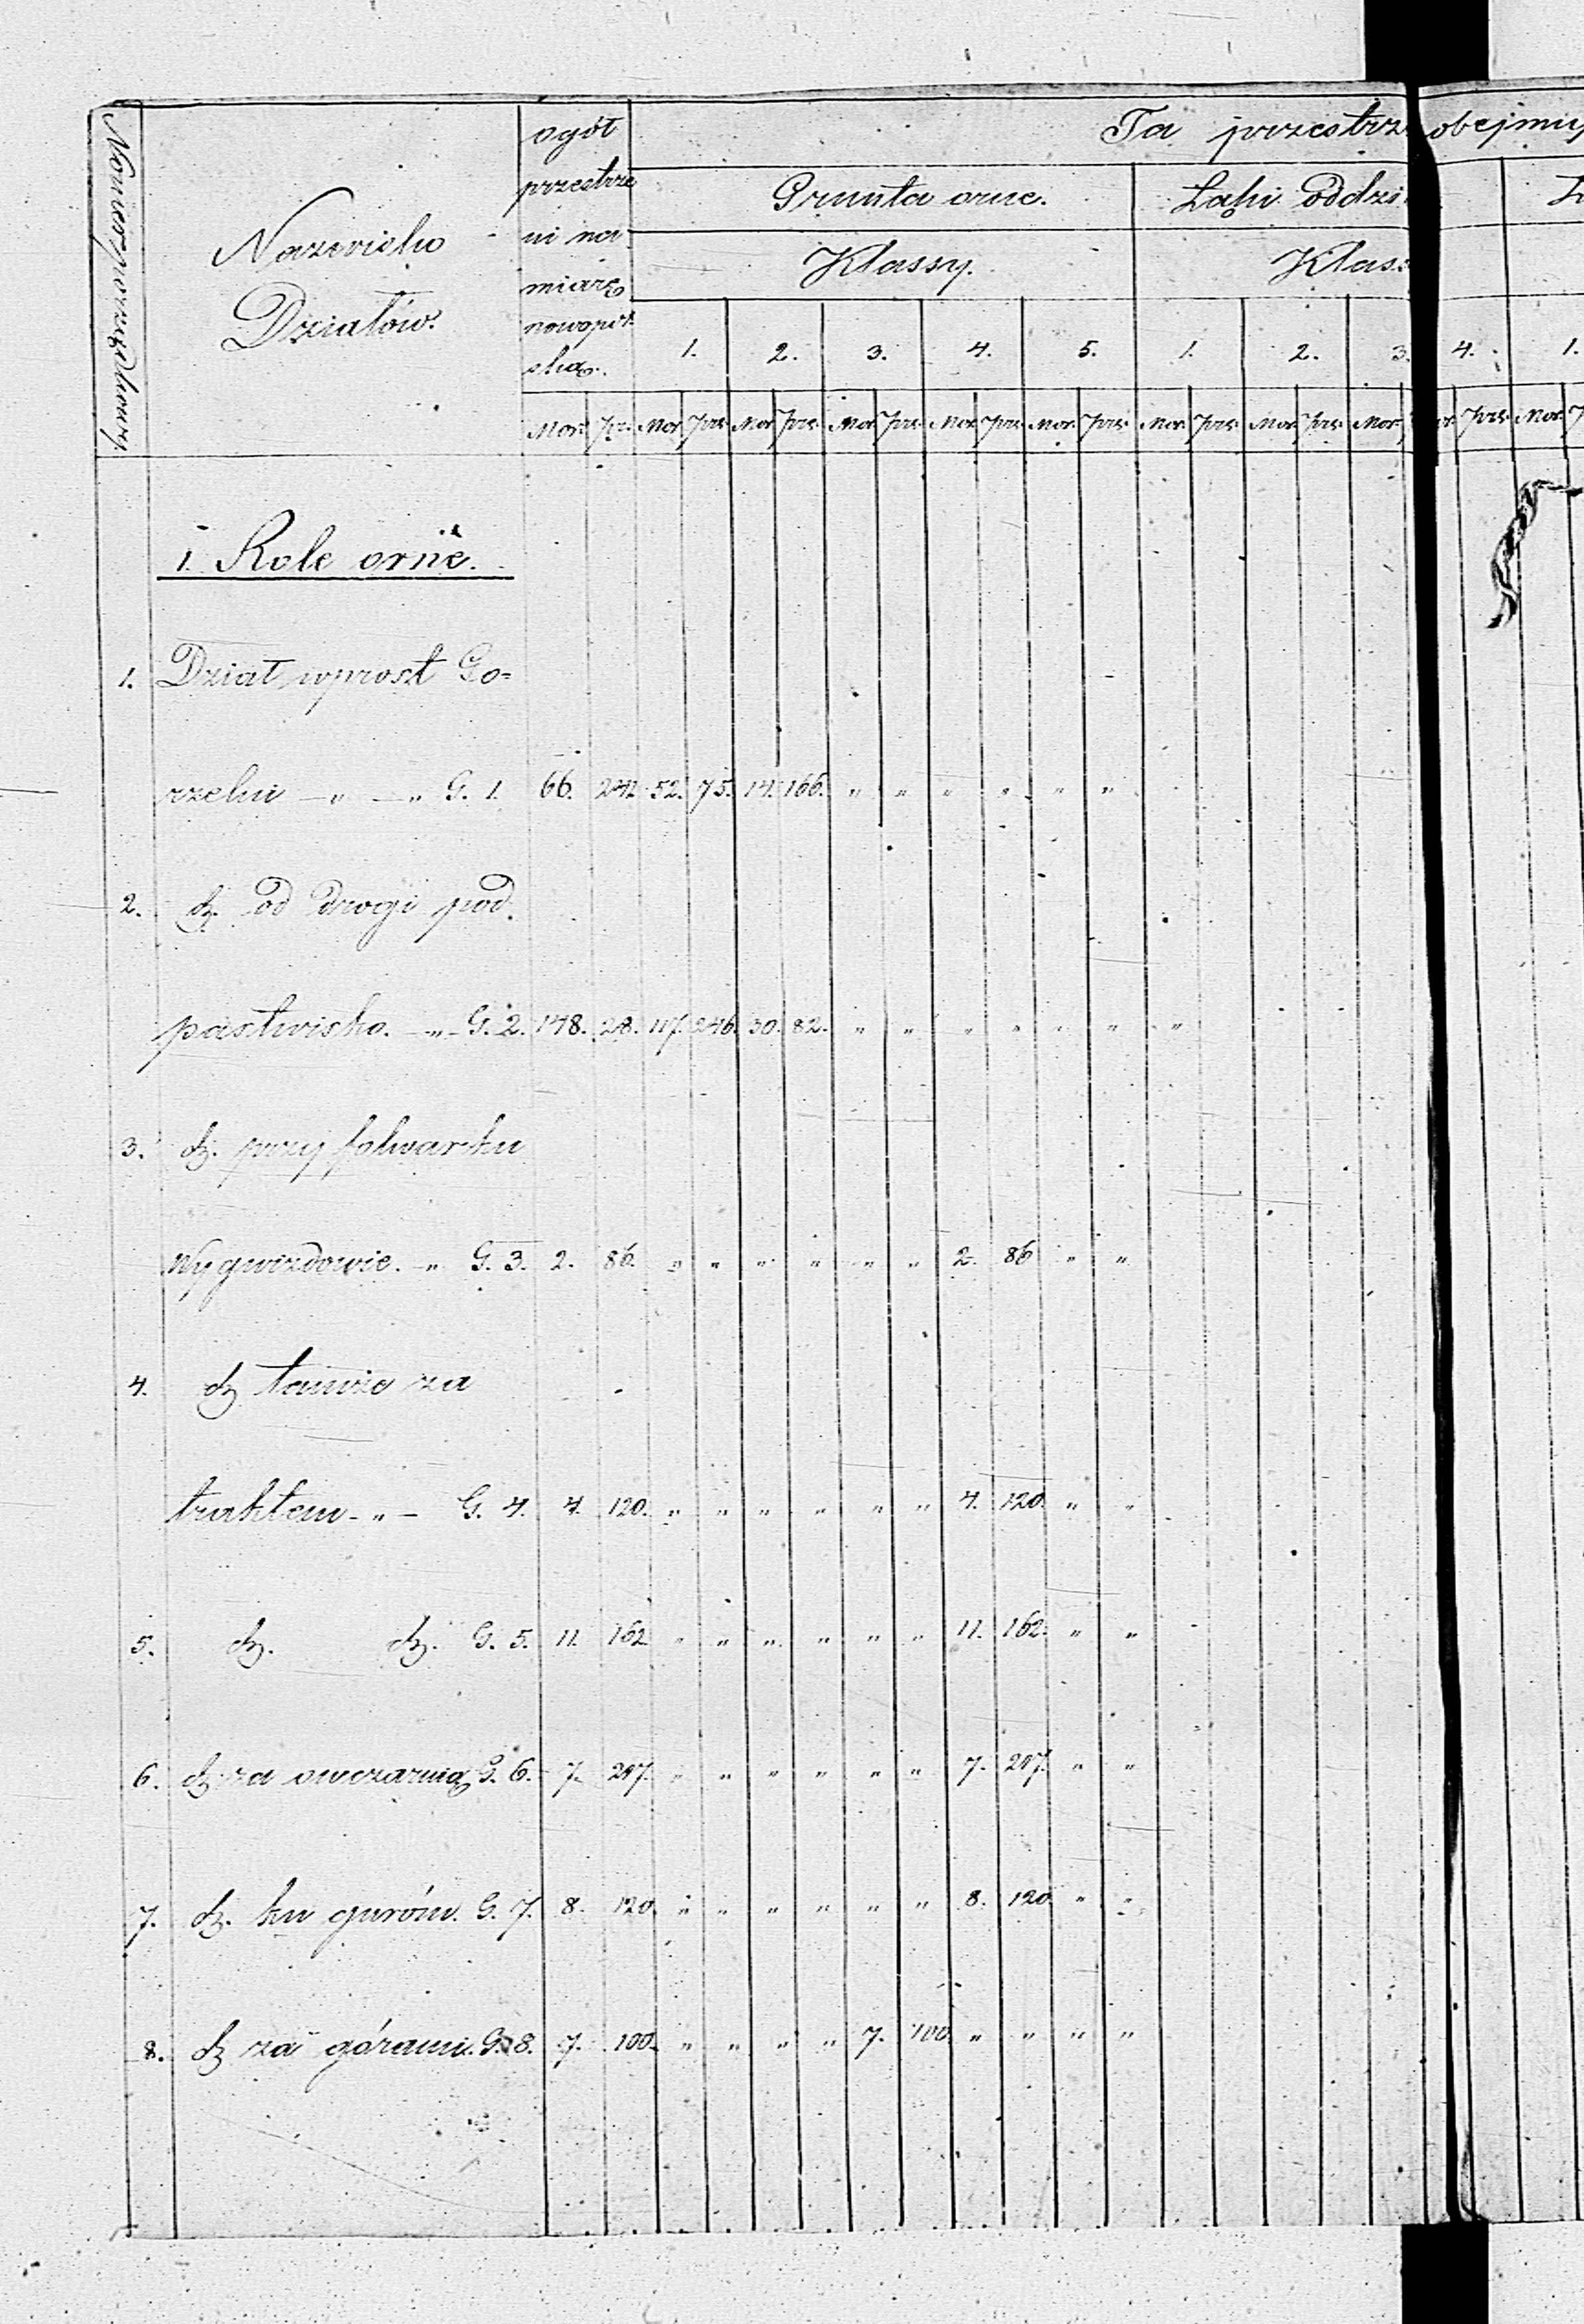 Numer porządkowy.
Nazwisko
Działów.
ogół
przestrze
ni na
miarę
nowopol
ską.
Ta przestrz obejmuj
Grunta orne.
Łąki oddzi
Klassy.
Klass
1. 2. 3. 4. 5. 1. 2. 3. 4. 1.
Mor. pr. Mor prę. Mor prę. Mor prę. Mor prę. Mor. prę. Mor. prę. Mor. prę. Mor. or. prę. Mor.
1. Role orne.
1. Dział wprost Go=
rzelni — „ — „ G. 1. 66. 241. 52. 75. 14. 166. „ „ „ „ „ „
2. dº. od drogi pod.
pastwisko. — „ — G. 2. 148. 28. 117. 246. 30. 82. „ „ „ „ „ „ „
3. dº. przy folwarku
Wygwizdowie. „ G. 3. 2. 86. „ „ „ „ „ „ 2. 86 „ „
4. dº tamże za
traktem - „ — G. 4. 4. 120. „ „ „ „ „ „ 4. 120. „ „
5. dº. dº. G. 5. 11. 162 „ „ „ „ „ „ 11. 162. „ „
6. dº za owczarnią G. 6. 7. 217. „ „ „ „ „ „ 7. 217. „ „
7. dº. ku guróm. G. 7. 8. 120. „ „ „ „ „ „ 8. 120 „ „
8. dº za górami. G. 8. 7. 100. „ „ „ „ 7. 100. „ „ „ „